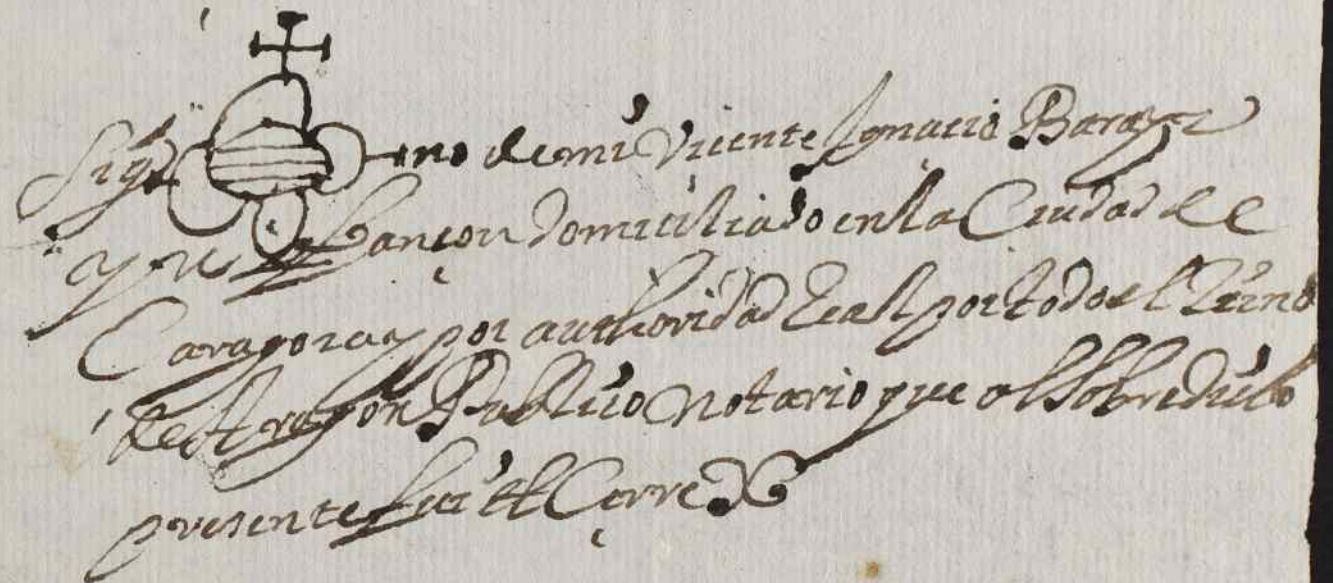 Sig no de mi Vicente Ygnacio Baraiz
y de Lançon domiciliado en la Ciudad de
Caragoza y por authoridad Real por todo el Reino
de Aragon Publico notario que al sobredicho
presente fui et Cerre